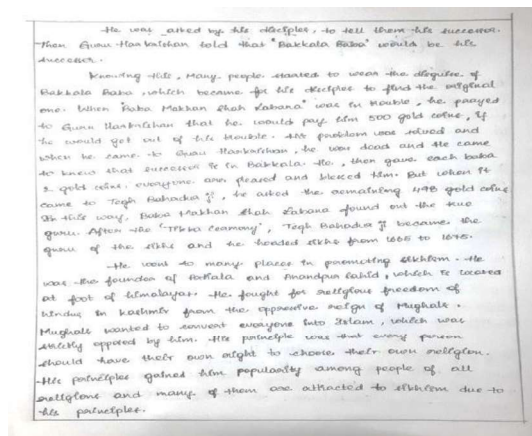 He was asked by his disciples, to tell them his successor.
Then Guru Harkrishan told that "Bakkala Baba" would be his
successor.
Knowing this, Many people started to wear the disguise of
Bakkala Baba, which became for his disciples to find the original
one. When "Baba Makhan Shah Labana" was in trouble, he prayed
to Guru Harkrishan that he would pay him 500 gold coins, if
he would get out of his trouble. His problem was solved and
when he came to Guru Harkrishan, he was dead and He came
to know that successor is in Bakkala. He, then gave each baba
2 gold coins. everyone are pleased and blessed him. But when it
came to Tegh Bahadur ji, he asked the remaining 498 gold coins
In this way, Baba Makhan Shah Labana found out the true
guru. After the "Tikka Ceamony", Tegh Bahadur ji became the
guru of the sikhs and he headed sikhs from 1665 to 1675.
He went to many places in promoting sikhism. He
was the founder of Patiala and Anandpur Sahid, which is located
at foot of himalayas. He fought for religious freedom of
hindus in kashmir from the oppressive reign of Mughals.
Mughals wanted to convert everyone into Islam, which was
strictly opposed by him. His principle was that every person
should have their own right to choose their own religion.
His principles gained him popularity among people of all
religions and many of them are attracted to sikhism due to
his principles.